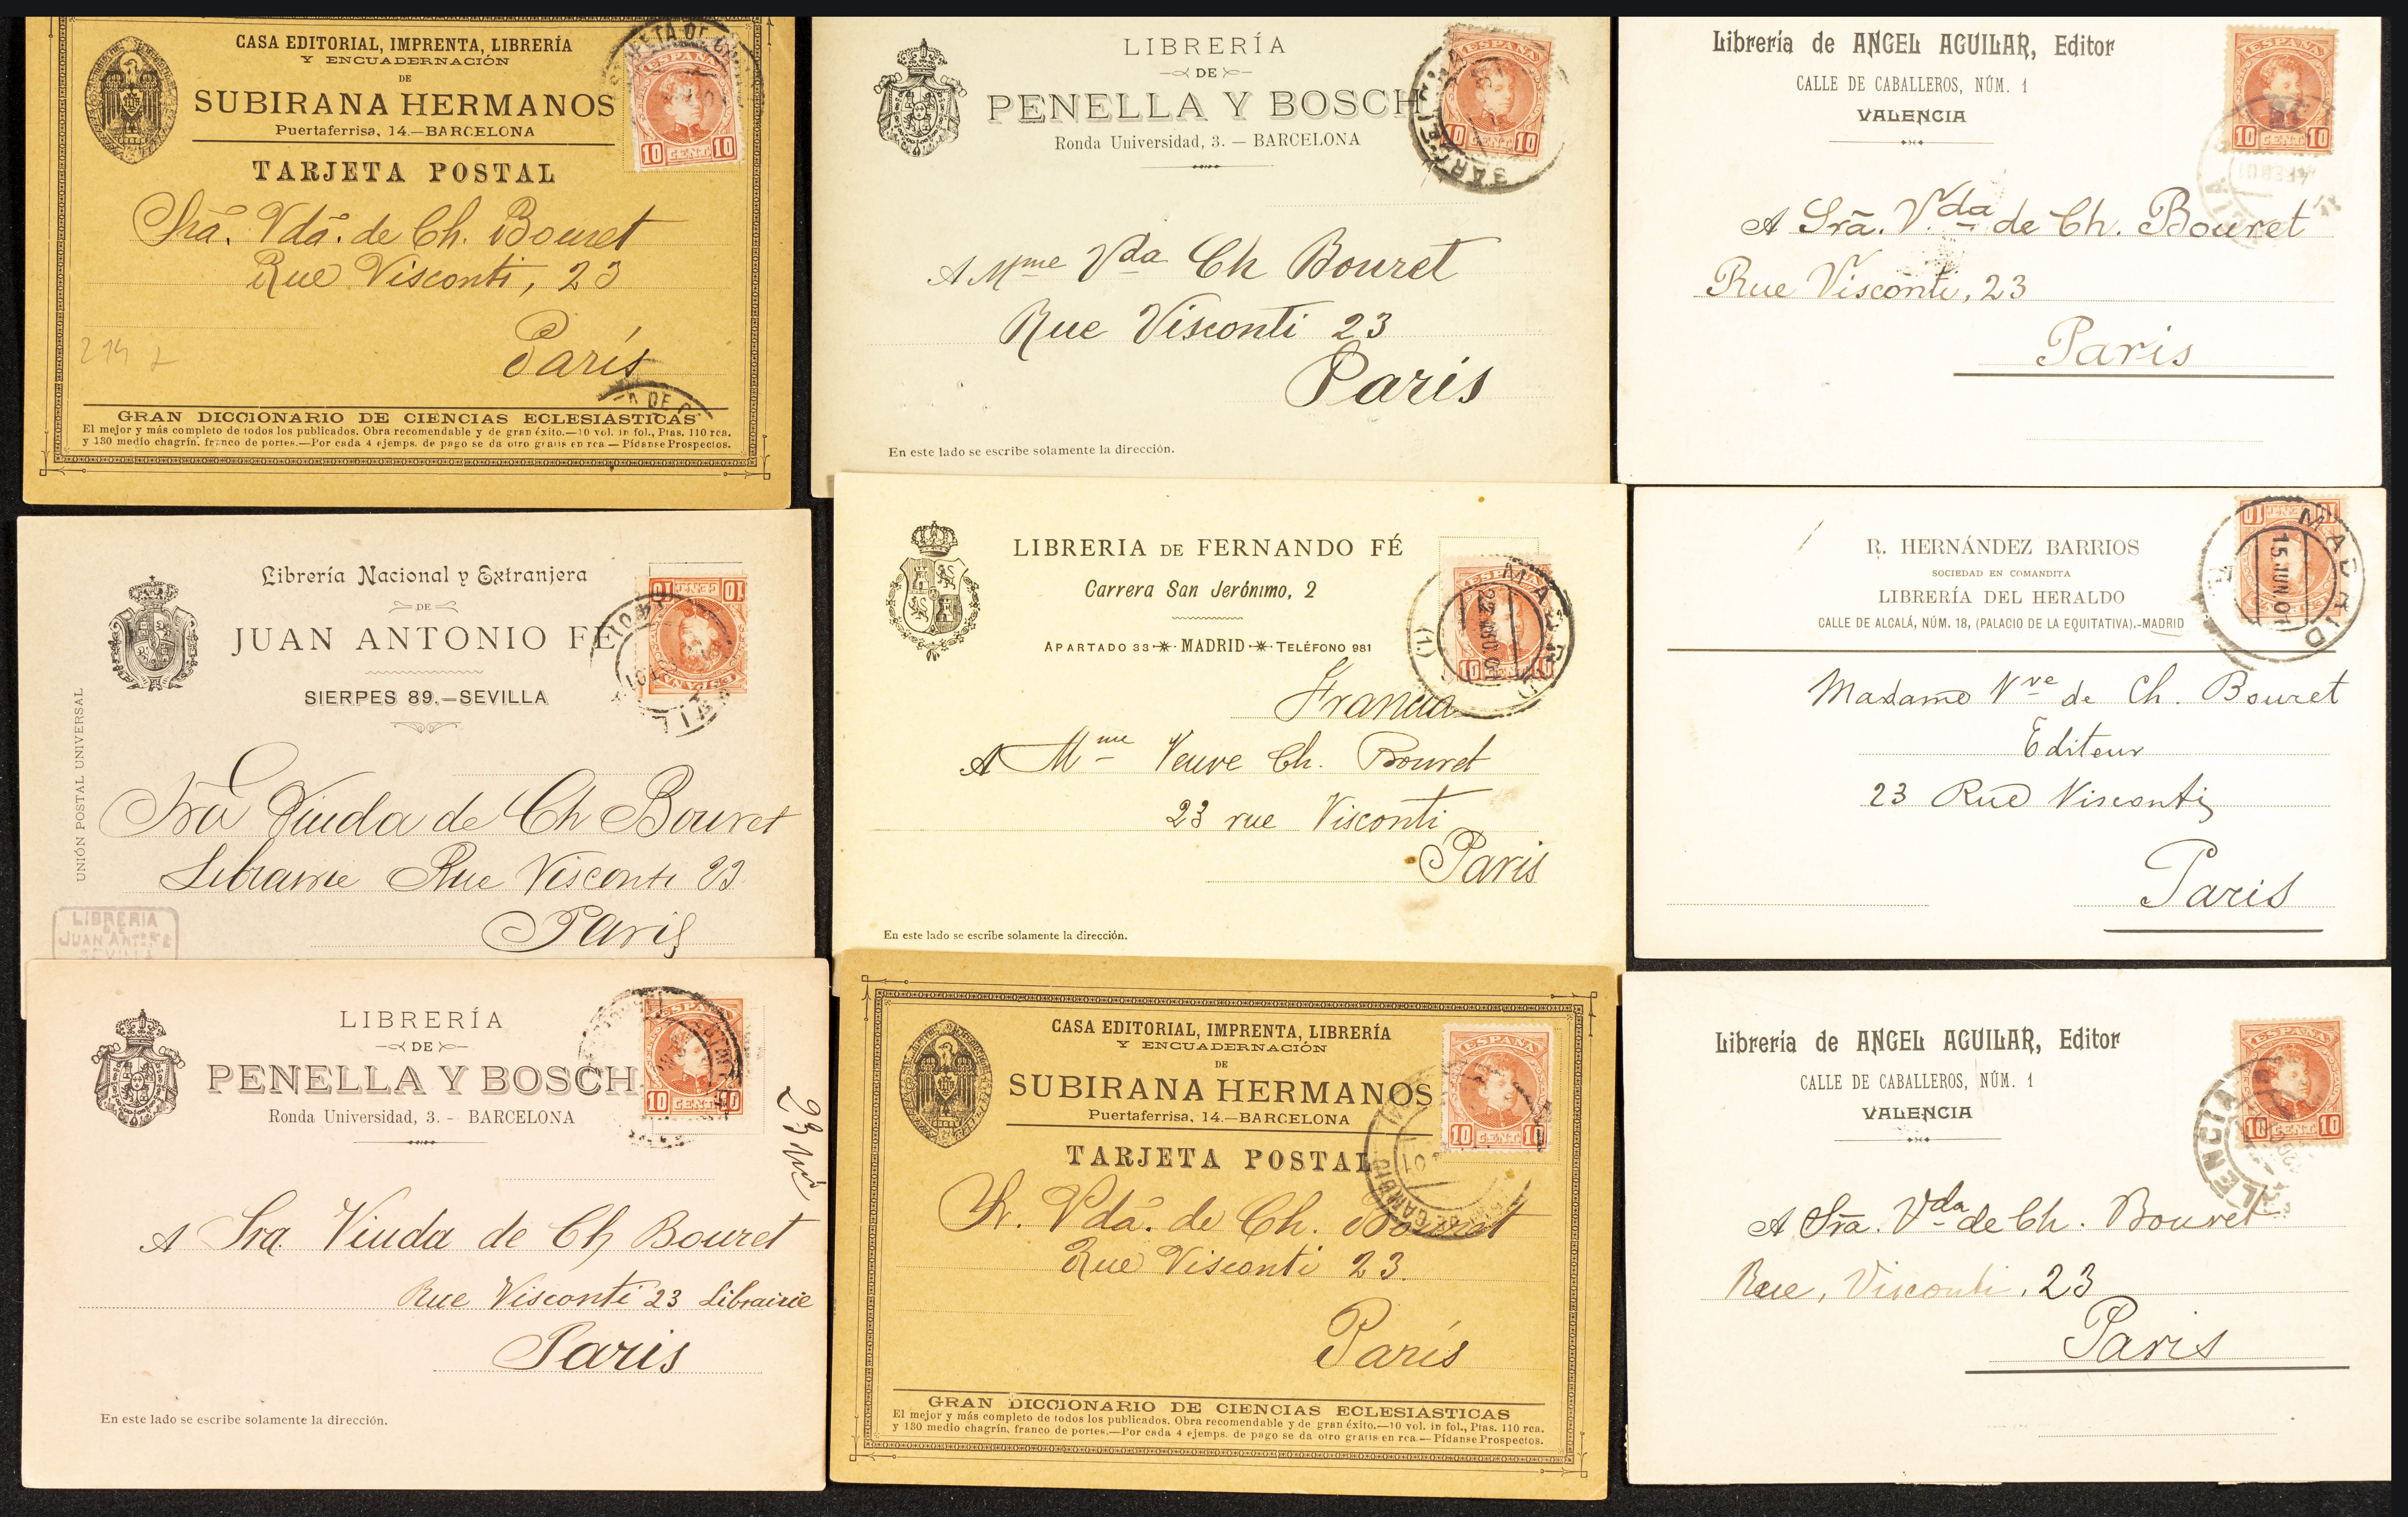 CASA EDITORIAL, IMPRENTA, LIBRERÍA
Y ENCUADERNACIÓN
DE
SUBIRANA HERMANOS
Puertaferrisa, 14.—BARCELONA
TARJETA POSTAL
ESPAÑA
10 CENT. 10
Sra. Vda. de Ch. Bouret
Rue Visconti, 23
París
214
GRAN DICCIONARIO DE CIENCIAS ECLESIÁSTICAS
El mejor y más completo de todos los publicados. Obra recomendable y de gran éxito.—10 vol. in fol., Ptas. 110 rca.
y 130 medio chagrín, franco de portes.—Por cada 4 ejemps. de pago se da otro gratis en rca.—Pídanse Prospectos.
LIBRERÍA
DE
PENELLA Y BOSCH
Ronda Universidad, 3. — BARCELONA
ESPAÑA
10 CENT. 10
A Mme Vda Ch Bouret
Rue Visconti 23
Paris
En este lado se escribe solamente la dirección.
Librería de ANGEL AGUILAR, Editor
CALLE DE CABALLEROS, NÚM. 1
VALENCIA
ESPAÑA
10 CENT. 10
A Sra. Vda de Ch. Bouret
Rue Visconti, 23
Paris
Librería Nacional y Extranjera
DE
JUAN ANTONIO FÉ
SIERPES 89.—SEVILLA
UNIÓN POSTAL UNIVERSAL
ESPAÑA
10 CENT. 10
Sra Viuda de Ch Bouret
Librairie Rue Visconti 23
Paris
LIBRERIA
DE
JUAN ANTº FÉ
SEVILLA
LIBRERIA DE FERNANDO FÉ
Carrera San Jerónimo, 2
APARTADO 33 · MADRID · TELÉFONO 981
MADRID
(1.)
10 10
Francia
A Mme Veuve Ch. Bouret
23 rue Visconti
Paris
En este lado se escribe solamente la dirección.
R. HERNÁNDEZ BARRIOS
SOCIEDAD EN COMANDITA
LIBRERÍA DEL HERALDO
CALLE DE ALCALÁ, NÚM. 18, (PALACIO DE LA EQUITATIVA).-MADRID
MADRID
15 JUN. 01
Madame Vve de Ch. Bouret
Editeur
23 Rue Visconti
Paris
LIBRERÍA
DE
PENELLA Y BOSCH
Ronda Universidad, 3. - BARCELONA
ESPAÑA
10 CENT. 10
A Sra. Viuda de Ch Bouret
Rue Visconti 23 Librairie
Paris
En este lado se escribe solamente la dirección.
CASA EDITORIAL, IMPRENTA, LIBRERÍA
Y ENCUADERNACIÓN
DE
SUBIRANA HERMANOS
Puertaferrisa, 14.—BARCELONA
TARJETA POSTAL
ESPAÑA
10 CENT. 10
Sr. Vda. de Ch. Bouret
Rue Visconti 23.
París
GRAN DICCIONARIO DE CIENCIAS ECLESIÁSTICAS
El mejor y más completo de todos los publicados. Obra recomendable y de gran éxito.—10 vol. in fol., Ptas. 110 rca.
y 130 medio chagrín, franco de portes.—Por cada 4 ejemps. de pago se da otro gratis en rca.—Pídanse Prospectos.
Librería de ANGEL AGUILAR, Editor
CALLE DE CABALLEROS, NÚM. 1
VALENCIA
ESPAÑA
10 CENT. 10
A Sra. Vda de Ch. Bouret
Rue, Visconti, 23
Paris